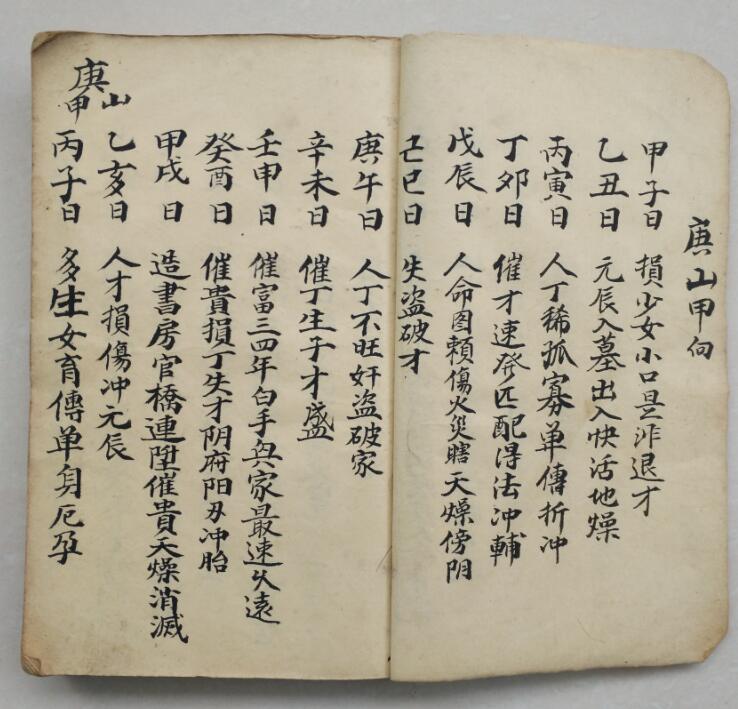 庚山甲向
甲子日 損少女小口是非退才
乙丑日 元辰入墓出入快活地燥
丙寅日 人丁稀孤寡单傳折冲
丁卯日 催才速発匹配得法冲輔
戊辰日 人命图頼傷火災瞎天燥傍阴
己巳日 失盗破才
庚午日 人丁不旺奸盗破家
辛未日 催丁生子才盛
壬申日 催富三四年白手興家最速久遠
癸酉日 催貴損丁失才阴府阳刃冲胎
甲戌日 造書房官橋連陞催貴天燥消滅
乙亥日 人才損傷冲元辰
丙子日 多生女育傳单身厄孕
庚山
甲